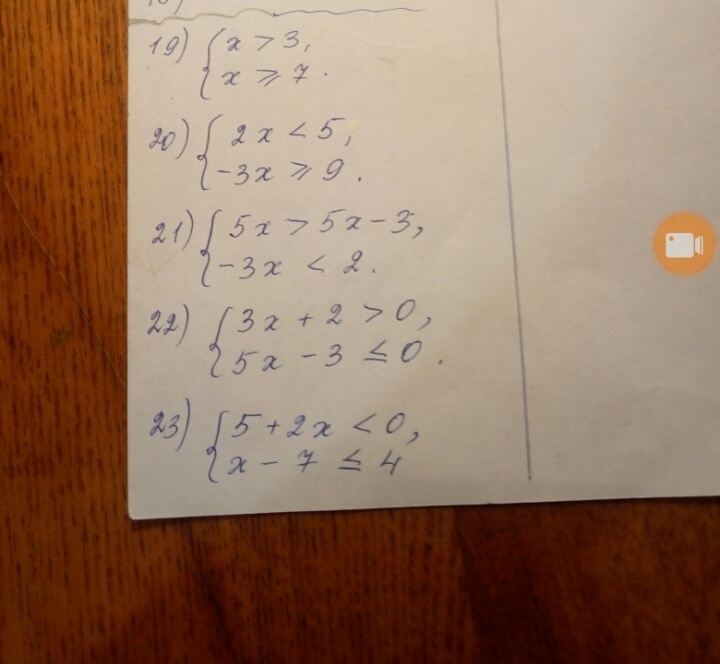 19) { x > 3,
x ⩾ 7.
20) { 2x < 5,
-3x ⩾ 9.
21) { 5x > 5x - 3,
-3x < 2.
22) { 3x + 2 > 0,
5x - 3 ≤ 0.
23) { 5 + 2x < 0,
x - 7 ≤ 4